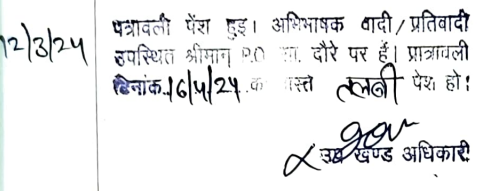 12/3/24
पत्रावली पेश हुई। अभिभाषक वादी/प्रतिवादी
उपस्थित श्रीमान P.O सा. दौरे पर हैं। प्रात्रावली
दिनांक 16/4/24 को वास्ते तलबी पेश हो।
उप खण्ड अधिकारी